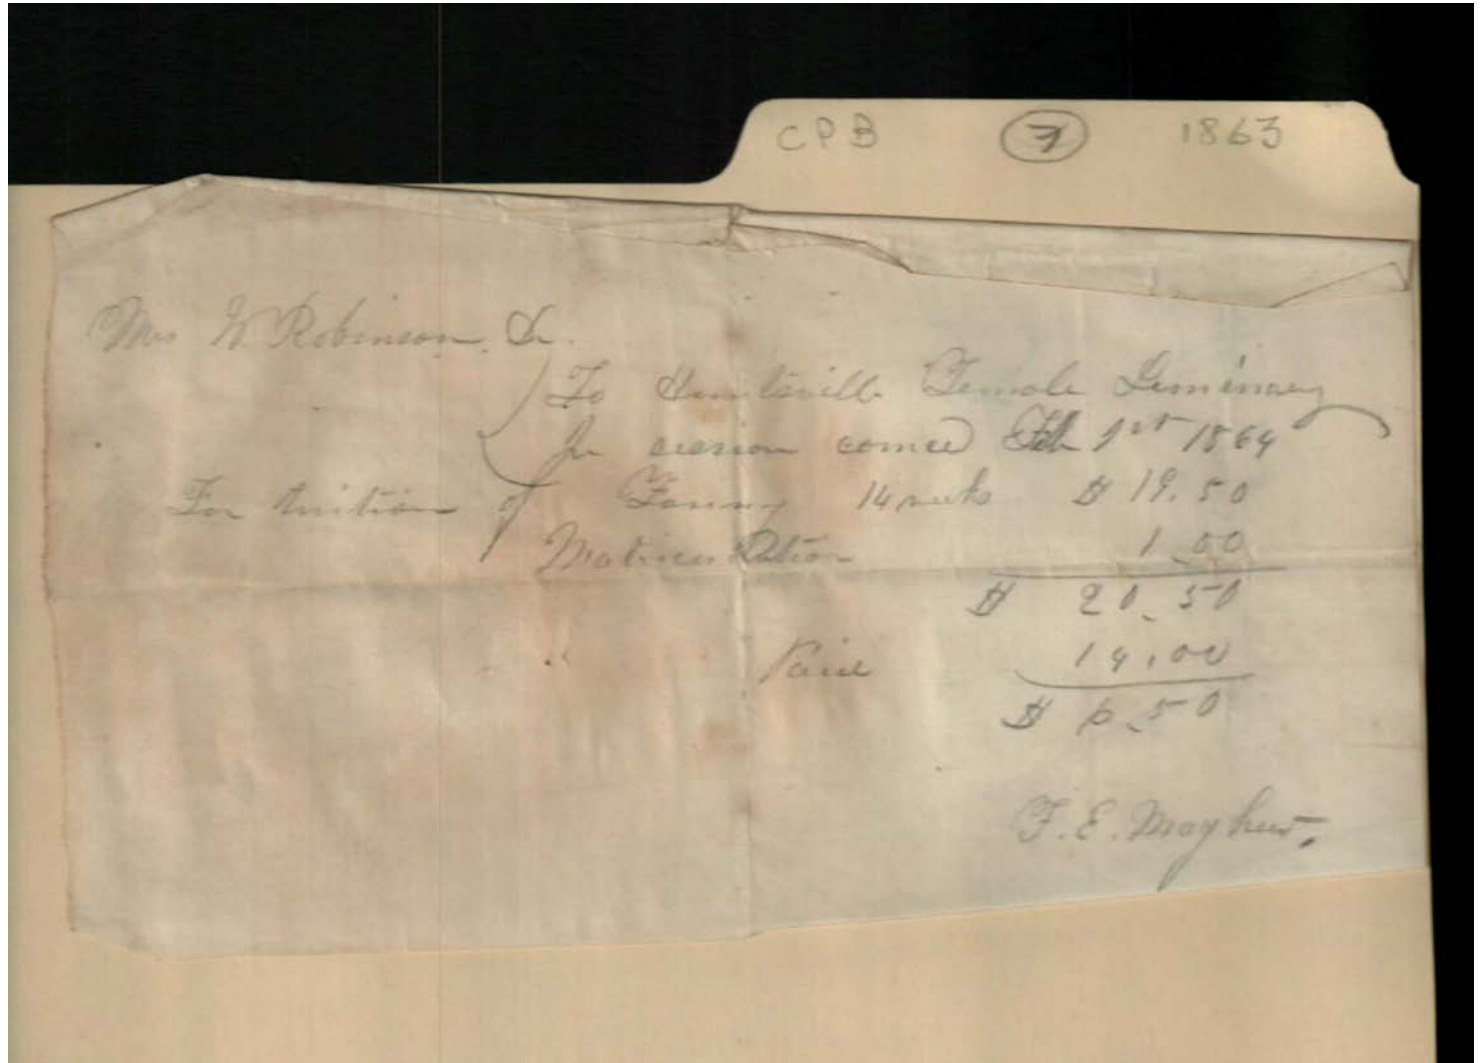 CPB 7 1863
Mrs W Robinson Dr.
To Huntsville Female Seminary
For session comced Feb 1st 1864
For tuition of Fanny 14 weeks $ 19.50
Matriculation 1.00
$ 20.50
" Paid 14.00
$ 6.50
F. E. Mayhew.